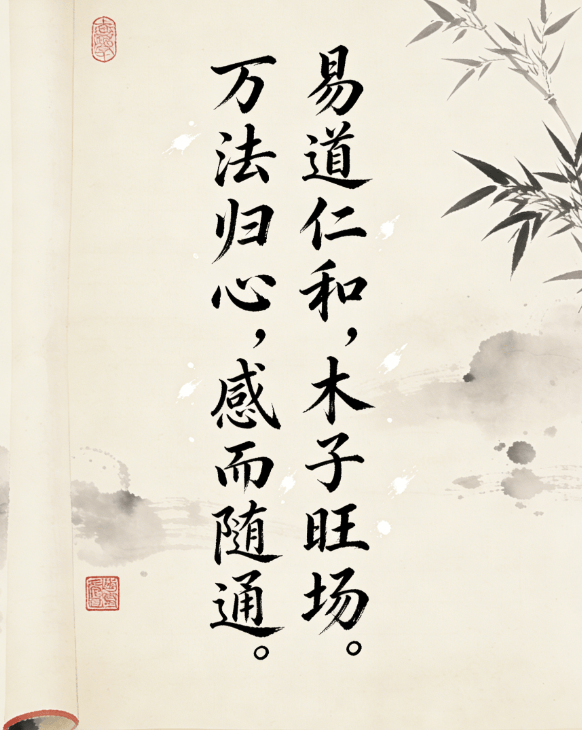 易道仁和，木子旺场。
万法归心，感而随通。